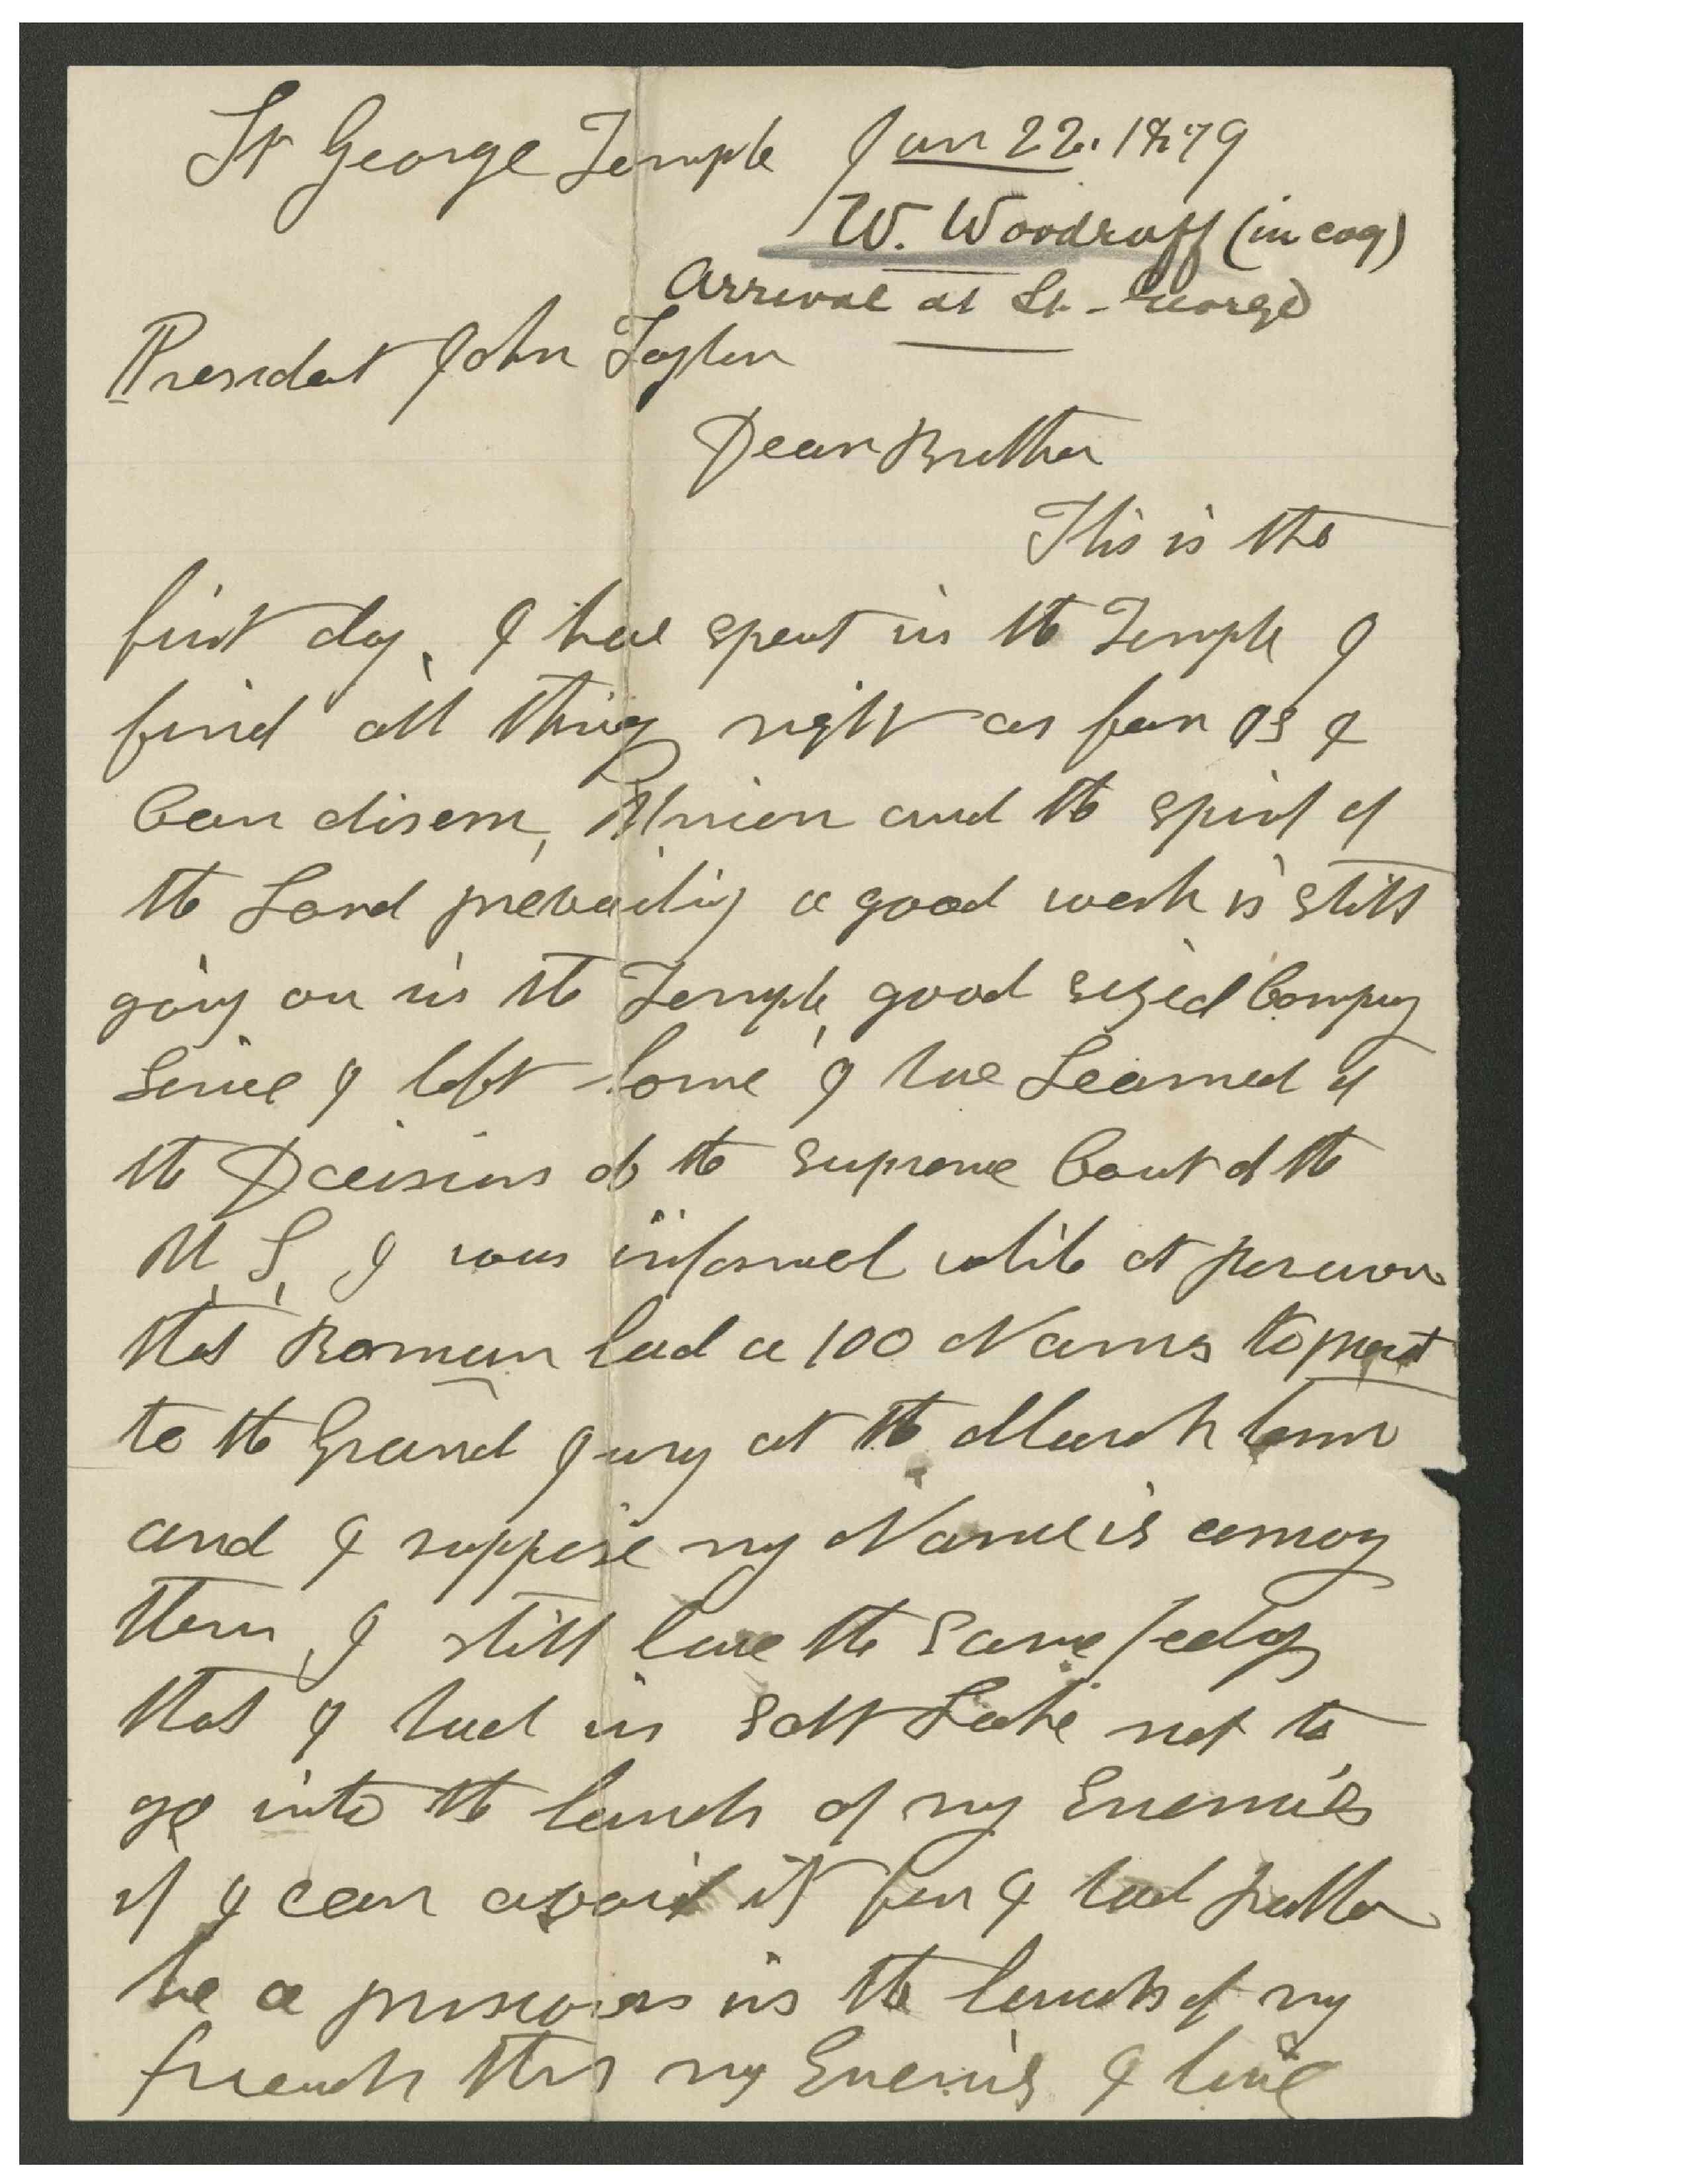 St George Temple Jan 22. 1879
W. Woodruff (in cog)
Arrival at St. George
President John Taylor
Dear Brother
This is the
first day, I have spent in the Temple I
find all things right as far as I
Can discern, Union and the spirit of
the Lord prevailing a good work is still
going on in the Temple, good sized Company
Since I left home I have Learned of
the Decisions of the Supreme Court of the
U, S, I was informed while at
that had a 100 Names to present
to the Grand Jury at the March term
and I suppose my Name is among
them, I still have the same feelings
that I had in Salt Lake not to
go into the hands of my Enemies
if I can avoid it for I had rather
be a prisoner in the hands of my
friends than my Enemies I have